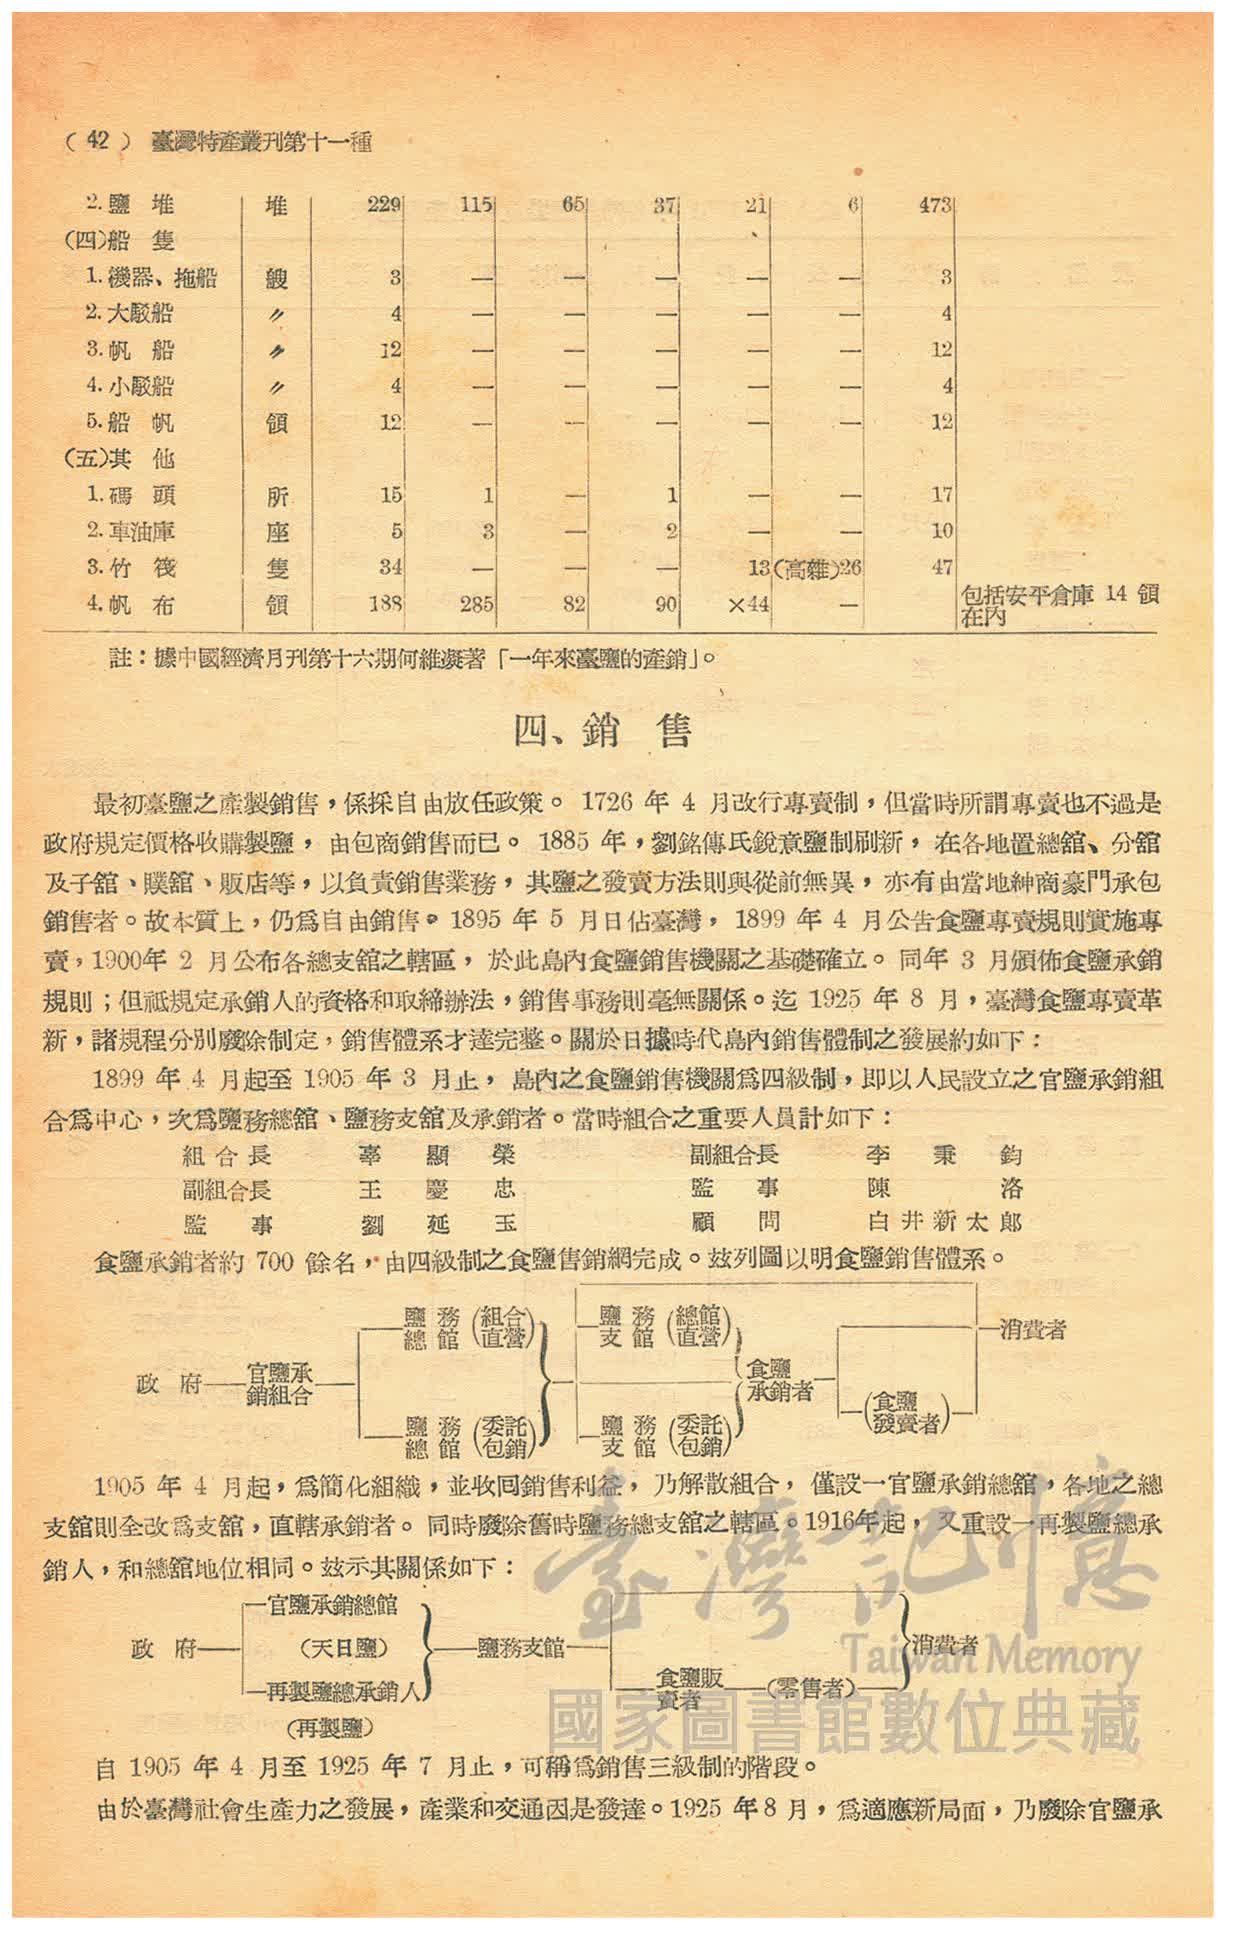 ( 42 ) 臺灣特產叢刊第十一種
2.鹽 堆 堆 229 115 65 37 21 6 473
(四)船 隻
1.機器、拖船 艘 3 — — — — — 3
2.大駁船 〃 4 — — — — — 4
3.帆 船 〃 12 — — — — — 12
4.小駁船 〃 4 — — — — — 4
5.船 帆 領 12 — — — — — 12
(五)其 他
1.碼 頭 所 15 1 — 1 — — 17
2.車油庫 座 5 3 — 2 — — 10
3.竹 筏 隻 34 — — — 13 (高雄)26 47
4.帆 布 領 188 285 82 90 ×44 — 包括安平倉庫 14 領
在內
註：據中國經濟月刊第十六期何維凝著「一年來臺鹽的產銷」。
四、銷 售
最初臺鹽之產製銷售，係採自由放任政策。 1726 年 4 月改行專賣制，但當時所謂專賣也不過是
政府規定價格收購製鹽， 由包商銷售而已。 1885 年，劉銘傳氏銳意鹽制刷新， 在各地置總舘、分舘
及子舘、贌舘、販店等，以負責銷售業務， 其鹽之發賣方法則與從前無異， 亦有由當地紳商豪門承包
銷售者。故本質上，仍爲自由銷售。 1895 年 5 月日佔臺灣， 1899 年 4 月公吿食鹽專賣規則實施專
賣，1900年 2 月公布各總支舘之轄區， 於此島內食鹽銷售機關之基礎確立。 同年 3 月頒佈食鹽承銷
規則；但祗規定承銷人的資格和取締辦法，銷售事務則毫無關係。迄 1925 年 8 月，臺灣食鹽專賣革
新，諸規程分別廢除制定，銷售體系才達完整。關於日據時代島內銷售體制之發展約如下：
1899 年 4 月起至 1905 年 3 月止， 島內之食鹽銷售機關爲四級制，即以人民設立之官鹽承銷組
合爲中心，次爲鹽務總舘、鹽務支舘及承銷者。當時組合之重要人員計如下：
組 合 長 辜 顯 榮 副組合長 李 秉 鈞
副組合長 王 慶 忠 監 事 陳 洛
監 事 劉 延 玉 顧 問 白 井 新 太 郞
食鹽承銷者約 700 餘名，由四級制之食鹽售銷網完成。玆列圖以明食鹽銷售體系。
鹽 務 (組合 鹽 務 (總館
總 館 直營) 支 館 直營)
消費者
政 府 官鹽承
銷組合
食鹽
承銷者
(食鹽
發賣者)
鹽 務 (委託 鹽 務 (委託
總 館 包銷) 支 館 包銷)
1905 年 4 月起，爲簡化組織，並收囘銷售利益， 乃解散組合， 僅設一官鹽承銷總舘，各地之總
支舘則全改爲支舘，直轄承銷者。 同時廢除舊時鹽務總支舘之轄區。1916年起， 又重設一再製鹽總承
銷人，和總舘地位相同。玆示其關係如下：
官鹽承銷總館
政 府 (天日鹽) 鹽務支館 消費者
再製鹽總承銷人 食鹽販
賣者 (零售者)
(再製鹽)
自 1905 年 4 月至 1925 年 7 月止，可稱爲銷售三級制的階段。
由於臺灣社會生產力之發展，產業和交通因是發達。1925 年 8 月， 爲適應新局面，乃廢除官鹽承
臺灣記憶
Taiwan Memory
國家圖書館數位典藏